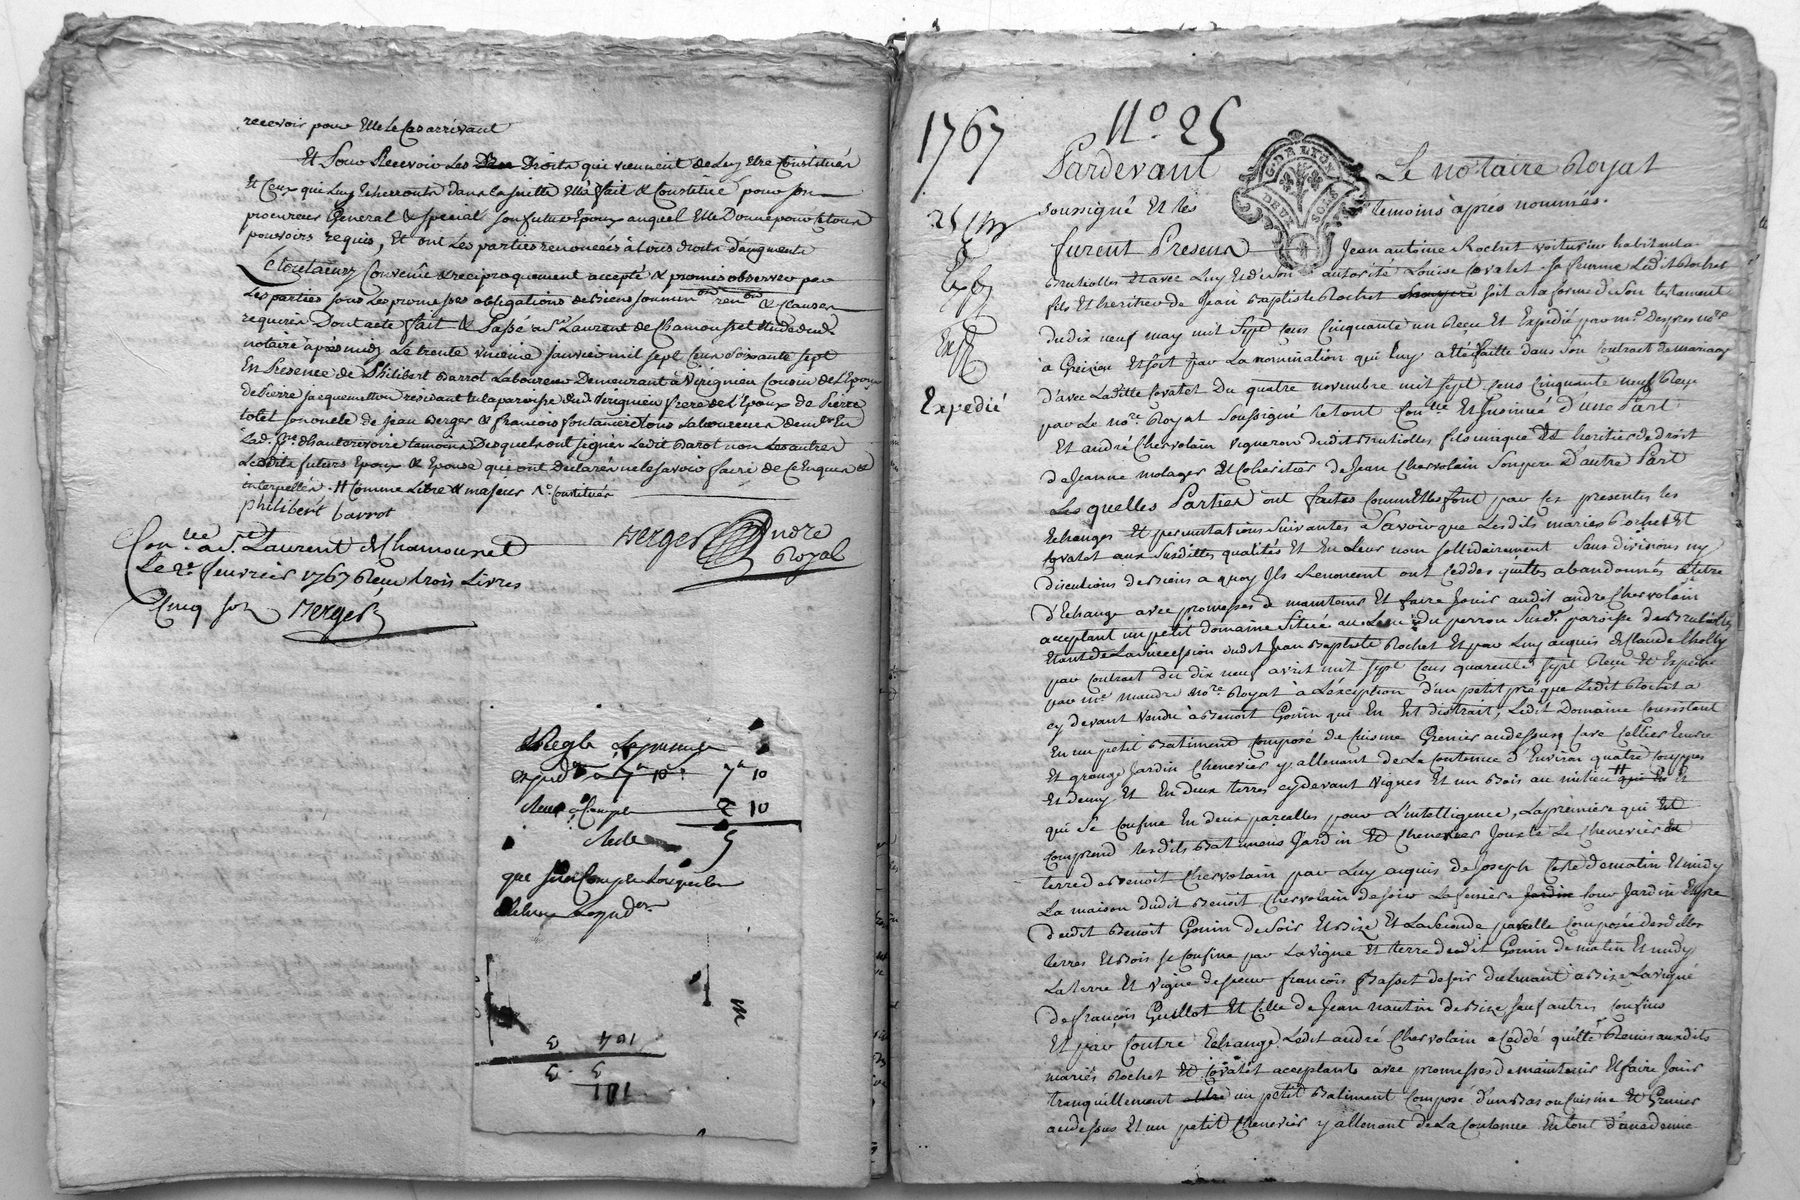 recevoir pour Elle le Cas arrivant
Et pour Recevoir Les Droits qui viennent de Luy Etre Constitués
Et Ceux qui Luy Echerronts dans la suitte Ella fait & Constitué pour son
procureur General & special son futur Epoux auquel Elle Donne pour ce tous
pouvoirs requis, Et ont Les parties renoncées à tous droits d'augments
Convenu & reciproquement accepté & promis observer par
Les parties sous Les promesses obligations de Biens & Clauses
requises Dont acte fait & Passé a St Laurent de Chamousset Etude dud.
notaire après midy Le trente unieme janvier mil sept Cens soixante sept
En Presence de Philibert Barrot Laboureur Demeurant à Virignieu Cousin de L'Epoux
de Pierre jacquemetton residant En la paroisse dud. Virignieu frere de L'Epoux de Pierre
totet son oncle de jean Berger & françois fontaniere tous Laboureurs demts En
Lad. de hauterivoire temoins Desquels ont signés Ledit Barot non Les autres
Lesdits futurs Epoux & Epouse qui ont declarés ne le savoir faire de ce Enquis &
interpellés. Comme Libre & majeur Constitués
philibert barrot
Berger
nore
Royal
Con.lée a St. Laurent de Chamousset
Le 2e. fevrier 1767 Reçu trois Livres
Cinq sols Berger
7 10
10
Reste 5
104 3
3 3
101
1767
No 25
Pardevant Le notaire Royal
soussigné Et les temoins après nommés.
furent Presens Jean antoine Rochet voiturier habitant a
Brutiolles Et avec Luy Et de son autorité Louise Covatet sa femme Ledit Rochet
fils Et heritier de Jean Baptiste Rochet soit a la forme de son testament
du dix neuf may mil sept cens Cinquante un Reçu Et Expedié par me. Despres nore.
à Grezieu Et soit par La nomination qui Luy a été faitte dans son Contract de mariage
d'avec Laditte Covatet Du quatre novembre mil sept cens Cinquante neuf Reçu
Expedié
par Le nore. Royal soussigné le tout Con.llé Et Insinué d'une Part
Et andré Chervolain vigneron dudit Brutiolles fils unique Et heritier de droit
de Jeanne molager Et Coheritier de Jean Chervolain son pere D'autre Part
Lesquelles Parties ont faites Comme Elles font par ces presentes les
Echanges Et permutations suivantes a savoir que Lesdits mariés Rochet Et
Covatet aux susdittes qualités Et En Leur nom sollidairement sans divisions ny
discutions de biens a quoy Ils Renoncent ont Ceddés quittés abandonnés a titre
d'Echange avec promesses de maintenir Et faire Jouir audit andré Chervolain
acceptant un petit domaine situé au Lieu du perron susde. paroisse de Brutiolles
Etant de La succession dudit Jean Baptiste Rochet Et par Luy acquis de Claude Cholly
par Contract du dix neuf avril mil sept cens quarente sept Reçu Et Expedié
par me. nore. Royal à L'exception d'un petit pré que Ledit Rochet a
cy devant vendu à Benoit Gonin qui En Est distrait; Ledit Domaine Consistant
En un petit Batiment Composé de Cuisine Grenier audessus Cave Cellier Ecurie
Et grange Jardin Chenevier y attenant de La Contenue D'Environ quatre Couppes
Et demy Et En deux terres cydevant vignes Et un Bois au milieu
qui se Confine En deux parcelles pour L'intelligence, La premiere qui
Comprend lesdits Batiments Jardin Et Chenevier Jouxte Le Chenevier Et
terre de Benoit Chervolain par Luy acquis de Joseph Coste de matin Et midy
La maison dudit Benoit Chervolain de soir La feniere cour Jardin Et pré
dudit Benoit Gonin de soir Et Bize Et La seconde parcelle Composée desdittes
terres Et Bois se Confine par La vigne Et terre dudit Gonin de matin Et midy
La terre Et vigne de sieur françois Basset de soir dudmant a Bize La vigne
de françois Guillot Et Celle de Jean nautin de Bize sauf autres Confins
Et par Contre Echange Ledit andré Chervolain a Ceddé quitté Remis auxdits
mariés Rochet Et Covatet acceptants avec promesses de maintenir Et faire Jouir
tranquillement un petit Batiment Composé d'un Bas ou Cuisine Et Grenier
audessus Et un petit Chenevier y attenant de La Contenue En tout